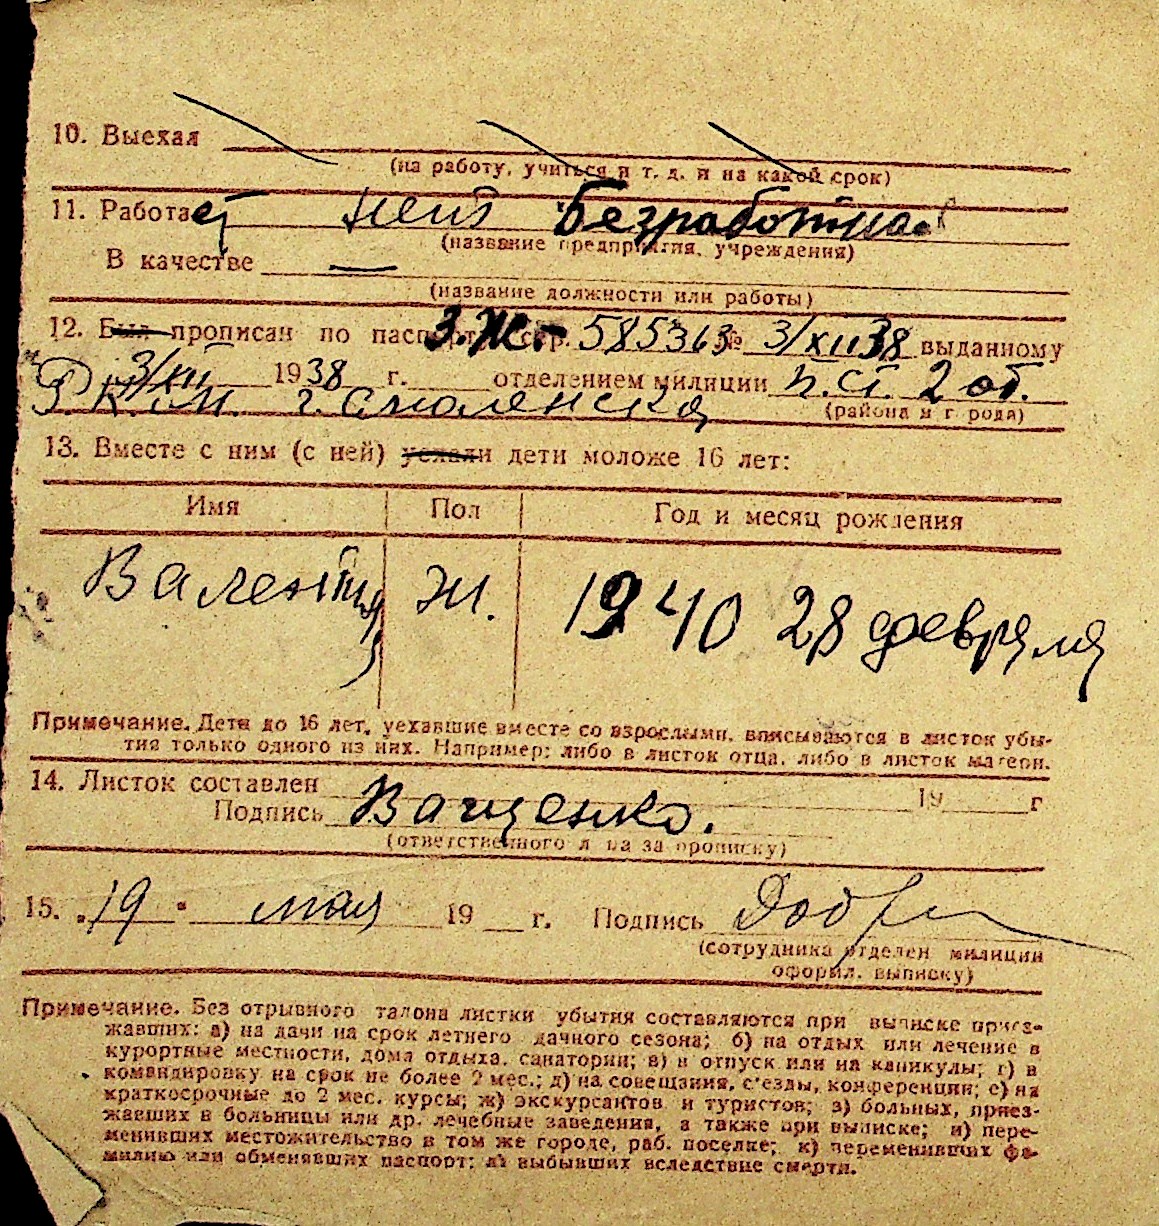 10. Выехал
(на работу, учиться и т. д. и на какой срок)
11. Работает нет Безработная
(название предприятия, учреждения)
В качестве —
(название должности или работы)
12. Был прописан по паспорт З.Ж. 585363 № 3/XII 38 выданному
3/XII 1938 г. отделением милиции п.ст. 2 от.
Р.К.М. г. Смоленска (района и города)
13. Вместе с ним (с ней) уехали дети моложе 16 лет:
Имя Пол Год и месяц рождения
Валентина Ж. 1940 28 февраля
Примечание. Дети до 16 лет, уехавшие вместе со взрослыми, вписываются в листок убы-
тия только одного из них. Например: либо в листок отца, либо в листок матери.
14. Листок составлен 19 г
Подпись Ващенко.
(ответственного л ца за прописку)
15. „19" мая 19 г. Подпись
(сотрудника отделен милиции
оформл. выписку)
Примечание. Без отрывного талона листки убытия составляются при выписке приез-
жавших: а) на дачи на срок летнего дачного сезона; б) на отдых или лечение в
курортные местности, дома отдыха, санатории; в) в отпуск или на каникулы; г) в
командировку на срок не более 2 мес.; д) на совещания, с'езды, конференции; е) на
краткосрочные до 2 мес. курсы; ж) экскурсантов и туристов; з) больных, приез-
жавших в больницы или др. лечебные заведения, а также при выписке; и) пере-
менивших местожительство в том же городе, раб. поселке; к) переменивших фа-
милию или обменявших паспорт; л) выбывших вследствие смерти.